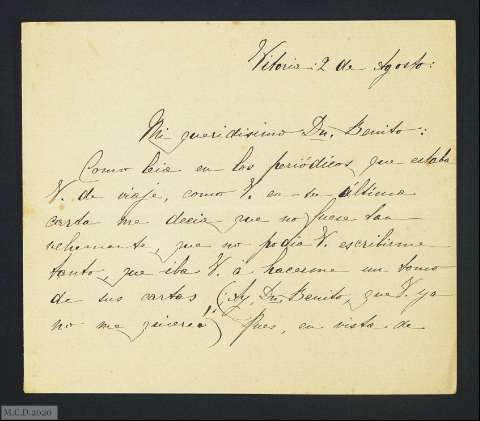 Vitoria: 2 de Agosto:
Mi queridisimo Dn. Benito:
Como leia en los periódicos que estaba
V. de viaje, como V. en su última
carta me decia que no fuese tan
vehemente, que no podia V. escribirme
tanto, que iba V. á hacerme un tomo
de sus cartas, (Ay, Dn. Benito, que V. ya
no me quiere!!) Pues, en vista de
M.C.D.2020